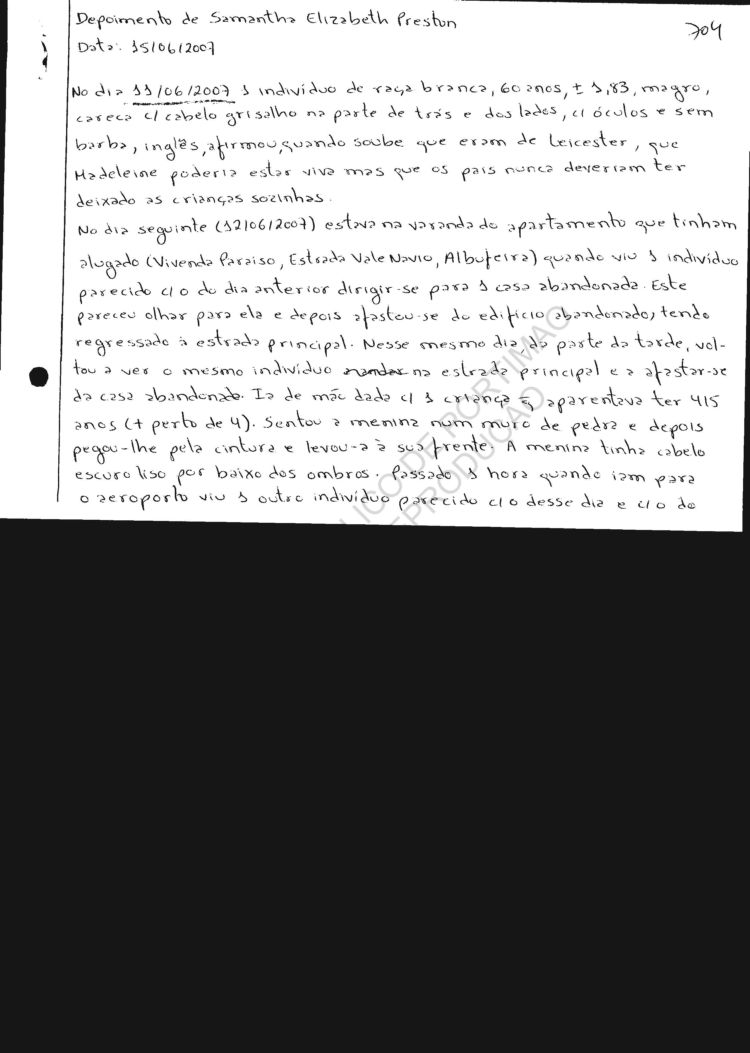 Depoimento de Samantha Elizabeth Preston
704
Data: 15/06/2007
No dia 11/06/2007 1 indivíduo de raça branca, 60 anos, ± 1,83, magro,
careca c/ cabelo grisalho na parte de trás e dos lados, c/ óculos e sem
barba, inglês, afirmou, quando soube que eram de Leicester, que
Madeleine poderia estar viva mas que os pais nunca deveriam ter
deixado as crianças sozinhas.
No dia seguinte (12/06/2007) estava na varanda do apartamento que tinham
alugado (Vivenda Paraiso, Estrada Vale Navio, Albufeira) quando viu 1 indivíduo
parecido c/ o do dia anterior dirigir-se para 1 casa abandonada. Este
pareceu olhar para ela e depois afastou-se do edifício abandonado, tendo
regressado à estrada principal. Nesse mesmo dia, da parte da tarde, vol-
tou a ver o mesmo indivíduo na estrada principal e a afastar-se
da casa abandonada. Ia de mão dada c/ 1 criança q aparentava ter 4/5
anos (+ perto de 4). Sentou a menina num muro de pedra e depois
pegou-lhe pela cintura e levou-a à sua frente. A menina tinha cabelo
escuro liso por baixo dos ombros. Passado 1 hora quando iam para
o aeroporto viu 1 outro indivíduo parecido c/ o desse dia e c/ o do
LICO DE PORTIMAO
REPRODUCAO